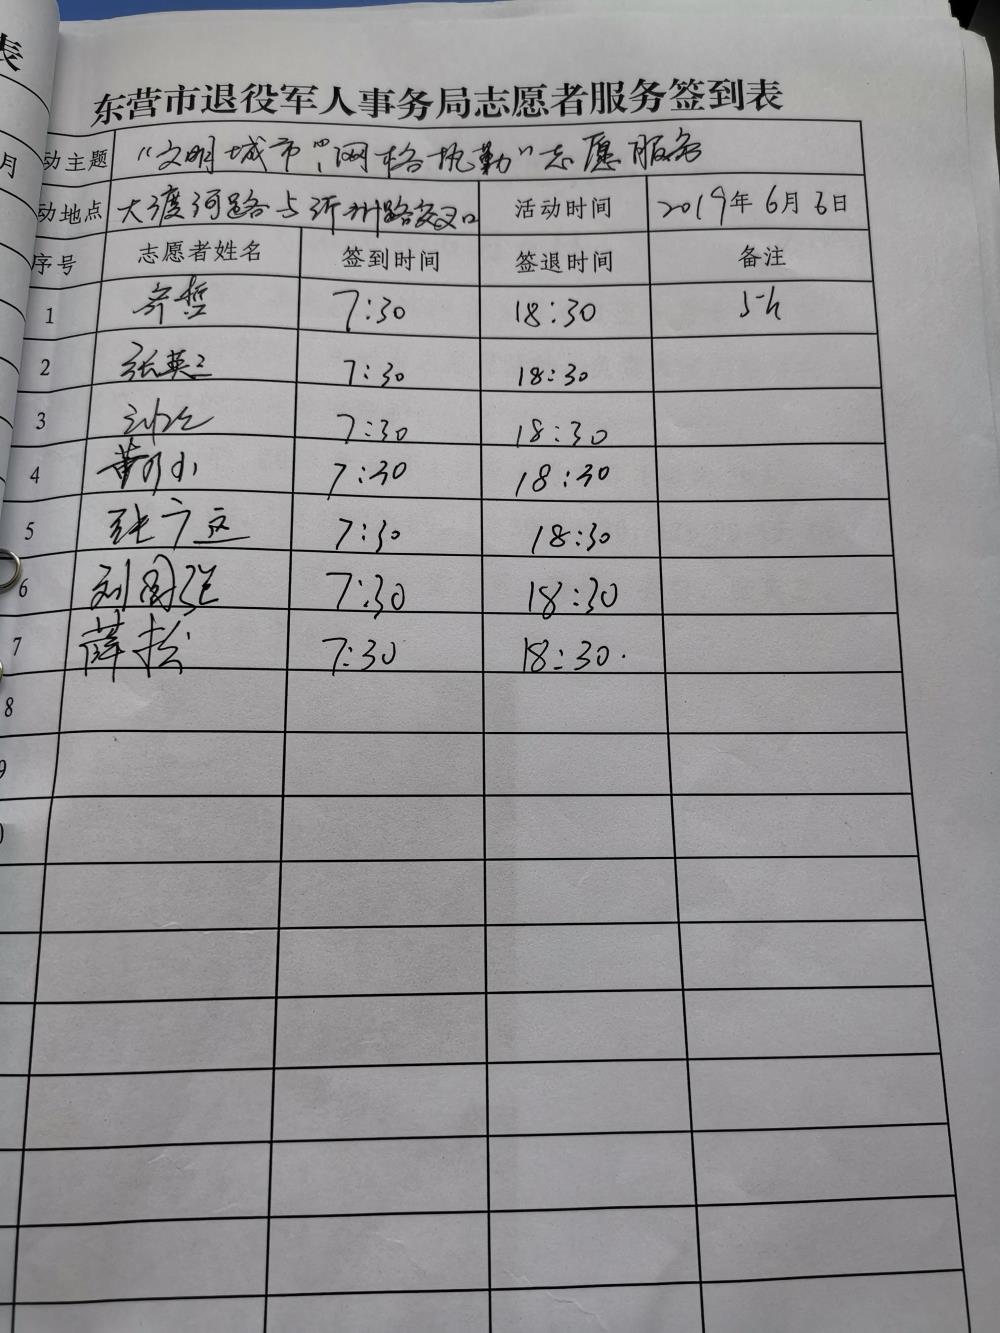 表
月
东营市退役军人事务局志愿者服务签到表
动主题 “文明城市”“网格执勤”志愿服务
动地点 大渡河路与沂州路交叉口 活动时间 2019年6月6日
序号 志愿者姓名 签到时间 签退时间 备注
1 齐哲 7:30 18:30 5h
2 张英 7:30 18:30
3 7:30 18:30
4 7:30 18:30
5 张广 7:30 18:30
6 刘国强 7:30 18:30
7 薛松 7:30 18:30.
8
9
0